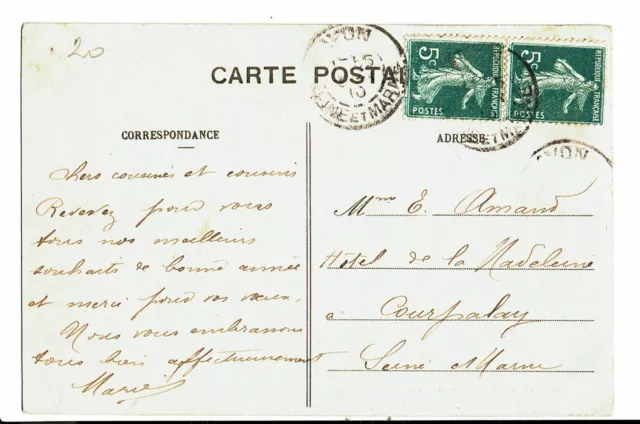 20
CARTE POSTAL
AVON
SEINE ET MARNE
5c REPUBLIQUE FRANÇAISE POSTES
5c REPUBLIQUE FRANÇAISE POSTES
AVON
CORRESPONDANCE
Chers cousines et cousins
Recevez pour vous
tous nos meilleurs
souhaits de bonne année
et merci pour vos vœux,
Nous vous embrassons
tous bien affectueusement
Marie
ADRESSE
Mme E. Amand
Hôtel de la Madeleine
à Courpalay
Seine et Marne